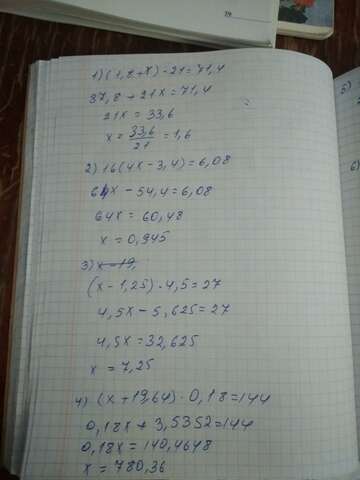 39
1) (1,8+x)·21=71,4
37,8+21x=71,4
21x=33,6
x=33,6/21=1,6
2) 16(4x-3,4)=6,08
64x-54,4=6,08
64x=60,48
x=0,945
3) x-19,
(x-1,25)·4,5=27
4,5x-5,625=27
4,5x=32,625
x=7,25
4) (x+19,64)·0,18=144
0,18x+3,5352=144
0,18x=140,4648
x=780,36
5)
6)